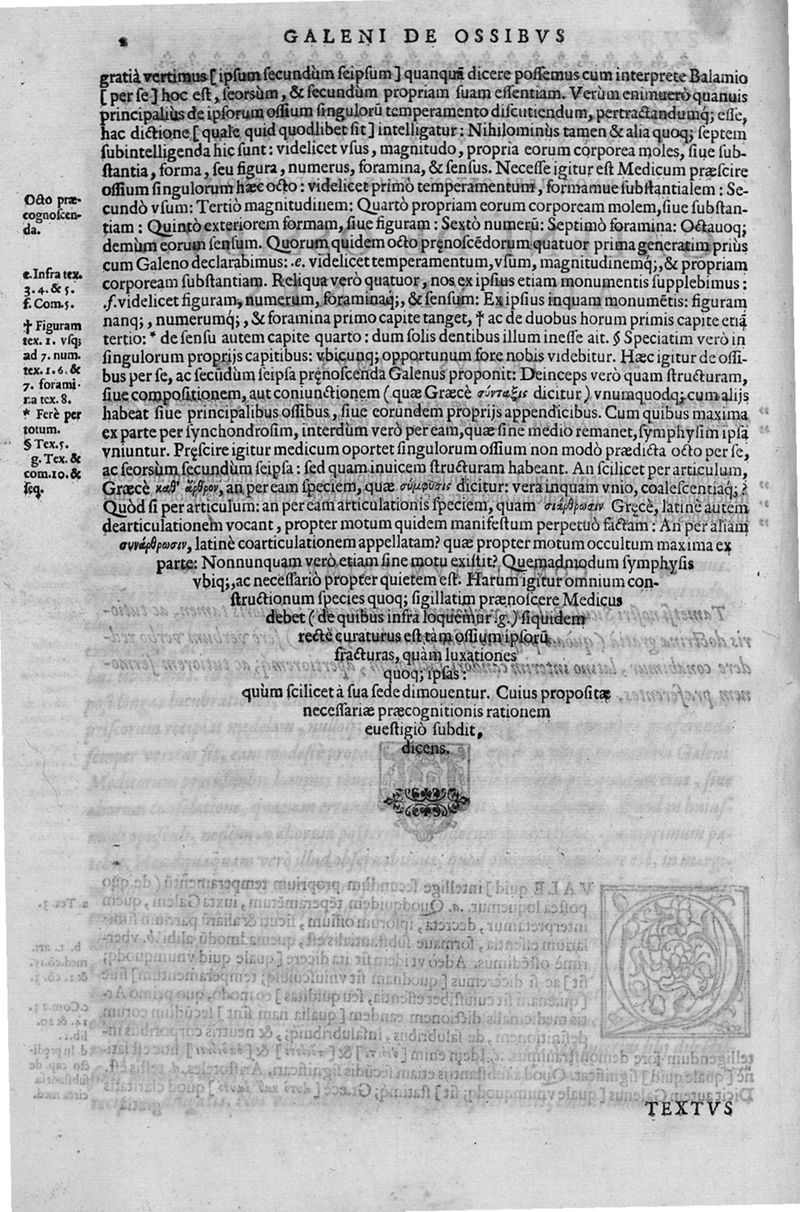 GALENI DE OSSIBVS
gratia vertimus [ipsum secundùm seipsum] quanquã dicere possemus cum interprete Balamio
[per se] hoc est, seorsùm, & secundùm propriam suam essentiam. Verùm enimuerò quanuis
principalius de ipsorum ossium singulorũ temperamento discutiendum, pertractandumq; esse,
hac dictione [quale quid quodlibet sit] intelligatur: Nihilominùs tamen & alia quoq; septem
subintelligenda hic sunt: videlicet vsus, magnitudo, propria eorum corporea moles, siue sub-
stantia, forma, seu figura, numerus, foramina, & sensus. Necesse igitur est Medicum præscire
ossium singulorum hæc octo: videlicet primò temperamentum, formamue substantialem: Se-
cundò vsum: Tertiò magnitudinem: Quartò propriam eorum corpoream molem, siue substan-
tiam: Quintò exteriorem formam, siue figuram: Sextò numerũ: Septimò foramina: Octauoq;
demùm eorum sensum. Quorum quidem octo pręnoscẽdorum quatuor prima generatim priùs
cum Galeno declarabimus: .e. videlicet temperamentum, vsum, magnitudinemq;, & propriam
corpoream substantiam. Reliqua verò quatuor, nos ex ipsius etiam monumentis supplebimus:
.f. videlicet figuram, numerum, foraminaq;, & sensum: Ex ipsius inquam monumẽtis: figuram
nanq;, numerumq;, & foramina primo capite tanget, † ac de duobus horum primis capite etiã
tertio: * de sensu autem capite quarto: dum solis dentibus illum inesse ait. § Speciatim verò in
singulorum proprijs capitibus: vbicunq; opportunum fore nobis videbitur. Hæc igitur de ossi-
bus per se, ac secũdùm seipsa pręnoscenda Galenus proponit: Deinceps verò quam structuram,
siue compositionem, aut coniunctionem (quæ Græcè σύνταξις dicitur) vnumquodq; cum alijs
habeat siue principalibus ossibus, siue eorundem proprijs appendicibus. Cum quibus maxima
ex parte per synchondrosim, interdùm verò per eam, quæ sine medio remanet, symphysim ipsa
vniuntur. Pręscire igitur medicum oportet singulorum ossium non modò prædicta octo per se,
ac seorsùm secundùm seipsa: sed quam inuicem structuram habeant. An scilicet per articulum,
Græcè καθ' ἄρθρον, an per eam speciem, quæ σύμφυσις dicitur: vera inquam vnio, coalescentiaq;?
Quòd si per articulum: an per eam articulationis speciem, quam διάρθρωσιν Gręcè, latinè autem
dearticulationem vocant, propter motum quidem manifestum perpetuò factam: An per aliam
συνάρθρωσιν, latinè coarticulationem appellatam? quæ propter motum occultum maxima ex
parte: Nonnunquam verò etiam sine motu existit? Quemadmodum symphysis
vbiq;, ac necessariò propter quietem est. Harum igitur omnium con-
structionum species quoq; sigillatim prænoscere Medicus
debet (de quibus infra loquemur .g.) siquidem
rectè curaturus est tàm ossium ipsorũ
fracturas, quàm luxationes
quoq; ipsas:
quùm scilicet à sua sede dimouentur. Cuius propositæ
necessariæ præcognitionis rationem
euestigiò subdit,
dicens.
Octo præ-
cognoscen-
da.
e. Infra tex.
3. 4. & 5.
f. Com. 5.
† Figuram
tex. 1. vsq;
ad 7. num.
tex. 1. 6. &
7. forami-
na tex. 8.
* Ferè per
totum.
§ Tex. 5.
g. Tex. &
com. 10. &
seq.
TEXTVS